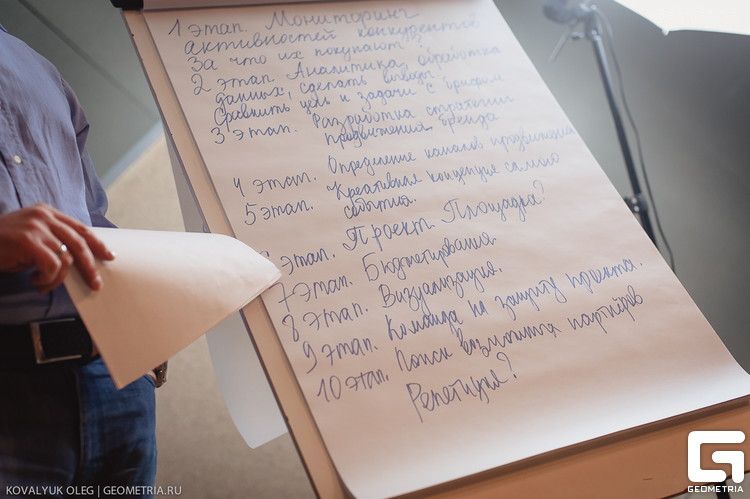 1 этап. Мониторинг
активностей конкурентов
За что их покупают?
2 этап. Аналитика, обработка
данных, сделать выводы
Сравнить цель и задачи с брифом
3 этап. Разработка стратегии
продвижения бренда
4 этап. Опрезление каналов продвижения
5 этап. Креативная концепция самого
события.
этап. Проект. Площадка?
7 этап. Бюджетирование
8 этап. Визуализация.
9 этап. Команда на защиту проекта.
10 этап. Поиск партнёров
Репетиция?
KOVALYUK OLEG | GEOMETRIA.RU
GEOMETRIA